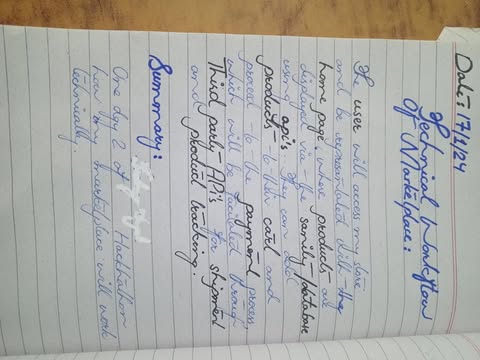 Date: 17/1/24
Technical Workflow
Of Marketplace:
The user will access my store
and be represented with the
home page where products are
displayed via the sanity database
using api's. They can add
products to their card and
proceed to the payment process
which will be handled through
Third parti APIs for shipment
and product tracking.
Summary:
One day 2 of Hackthation
how my marketplace will work
technically.